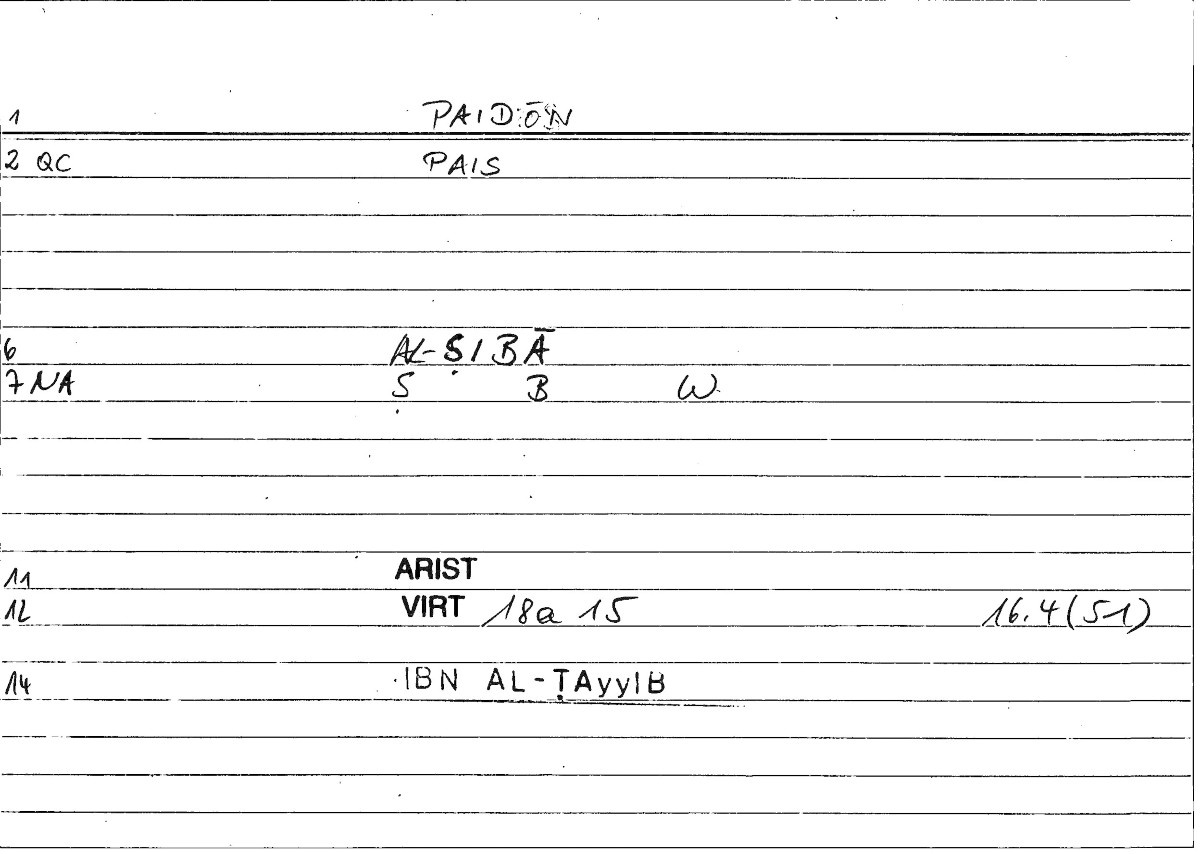 1 PAIDŌN
2 QC PAIS
6 AL-ṢIBĀ
7 NA Ṣ B W
11 ARIST
12 VIRT 18a 15 16.4(51)
14 IBN AL-ṬAyyIB